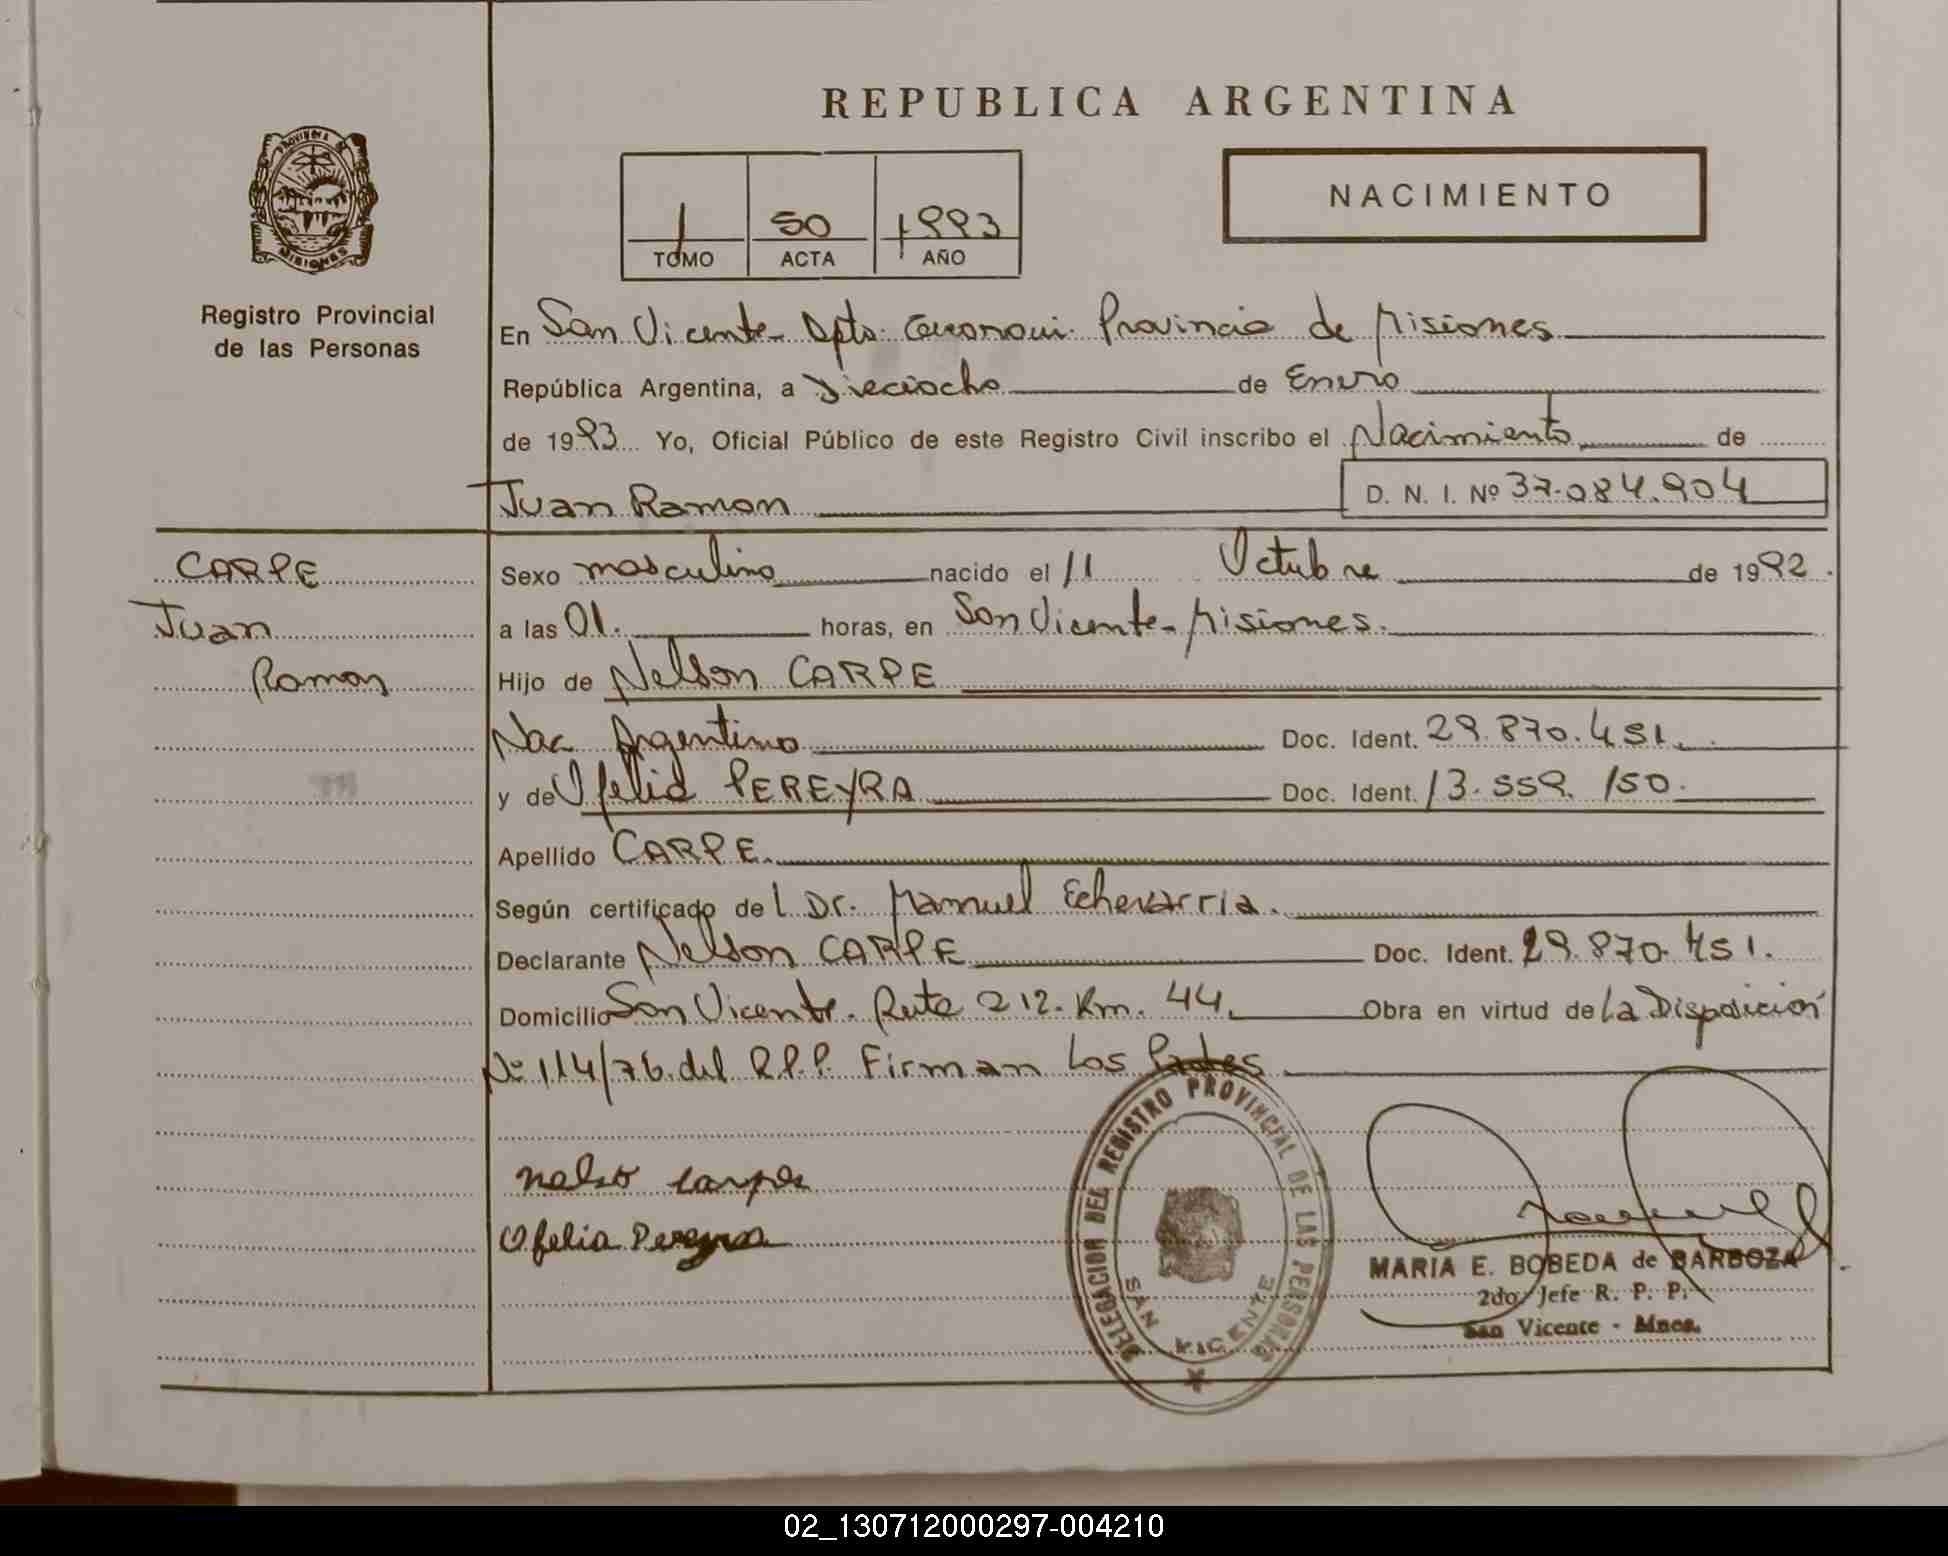 REPUBLICA ARGENTINA
PROVINCIA DE
MISIONES
Registro Provincial
de las Personas
1 50 1993
TOMO ACTA AÑO
NACIMIENTO
En San Vicente- Dpto. Provincia de Misiones
República Argentina, a Dieciocho de Enero
de 1993 Yo, Oficial Público de este Registro Civil inscribo el Nacimiento de
Juan Ramon D. N. I. Nº 37.084.904
CARPE
Juan
Ramon
Sexo masculino nacido el 11 Octubre de 1992
a las 01. horas, en San Vicente- Misiones.
Hijo de Nelson CARPE
Nac Argentino Doc. Ident. 29.870.451.
y de Ofelia PEREYRA Doc. Ident. 13.559.150.
Apellido CARPE.
Según certificado del Dr. Manuel Echevarria.
Declarante Nelson CARPE Doc. Ident. 29.870.451.
Domicilio San Vicente. Ruta 212. Km. 44. Obra en virtud de La Disposición
Nº 114/76. del R.P.P. Firman Los Padres
Nelso Carpe
Ofelia Pereyra
DELEGACION DEL REGISTRO PROVINCIAL DE LAS PERSONAS
SAN VICENTE
MARIA E. BOBEDA de BARBOZA
2do. Jefe R. P. P.
San Vicente - Mnes.
02_130712000297-004210